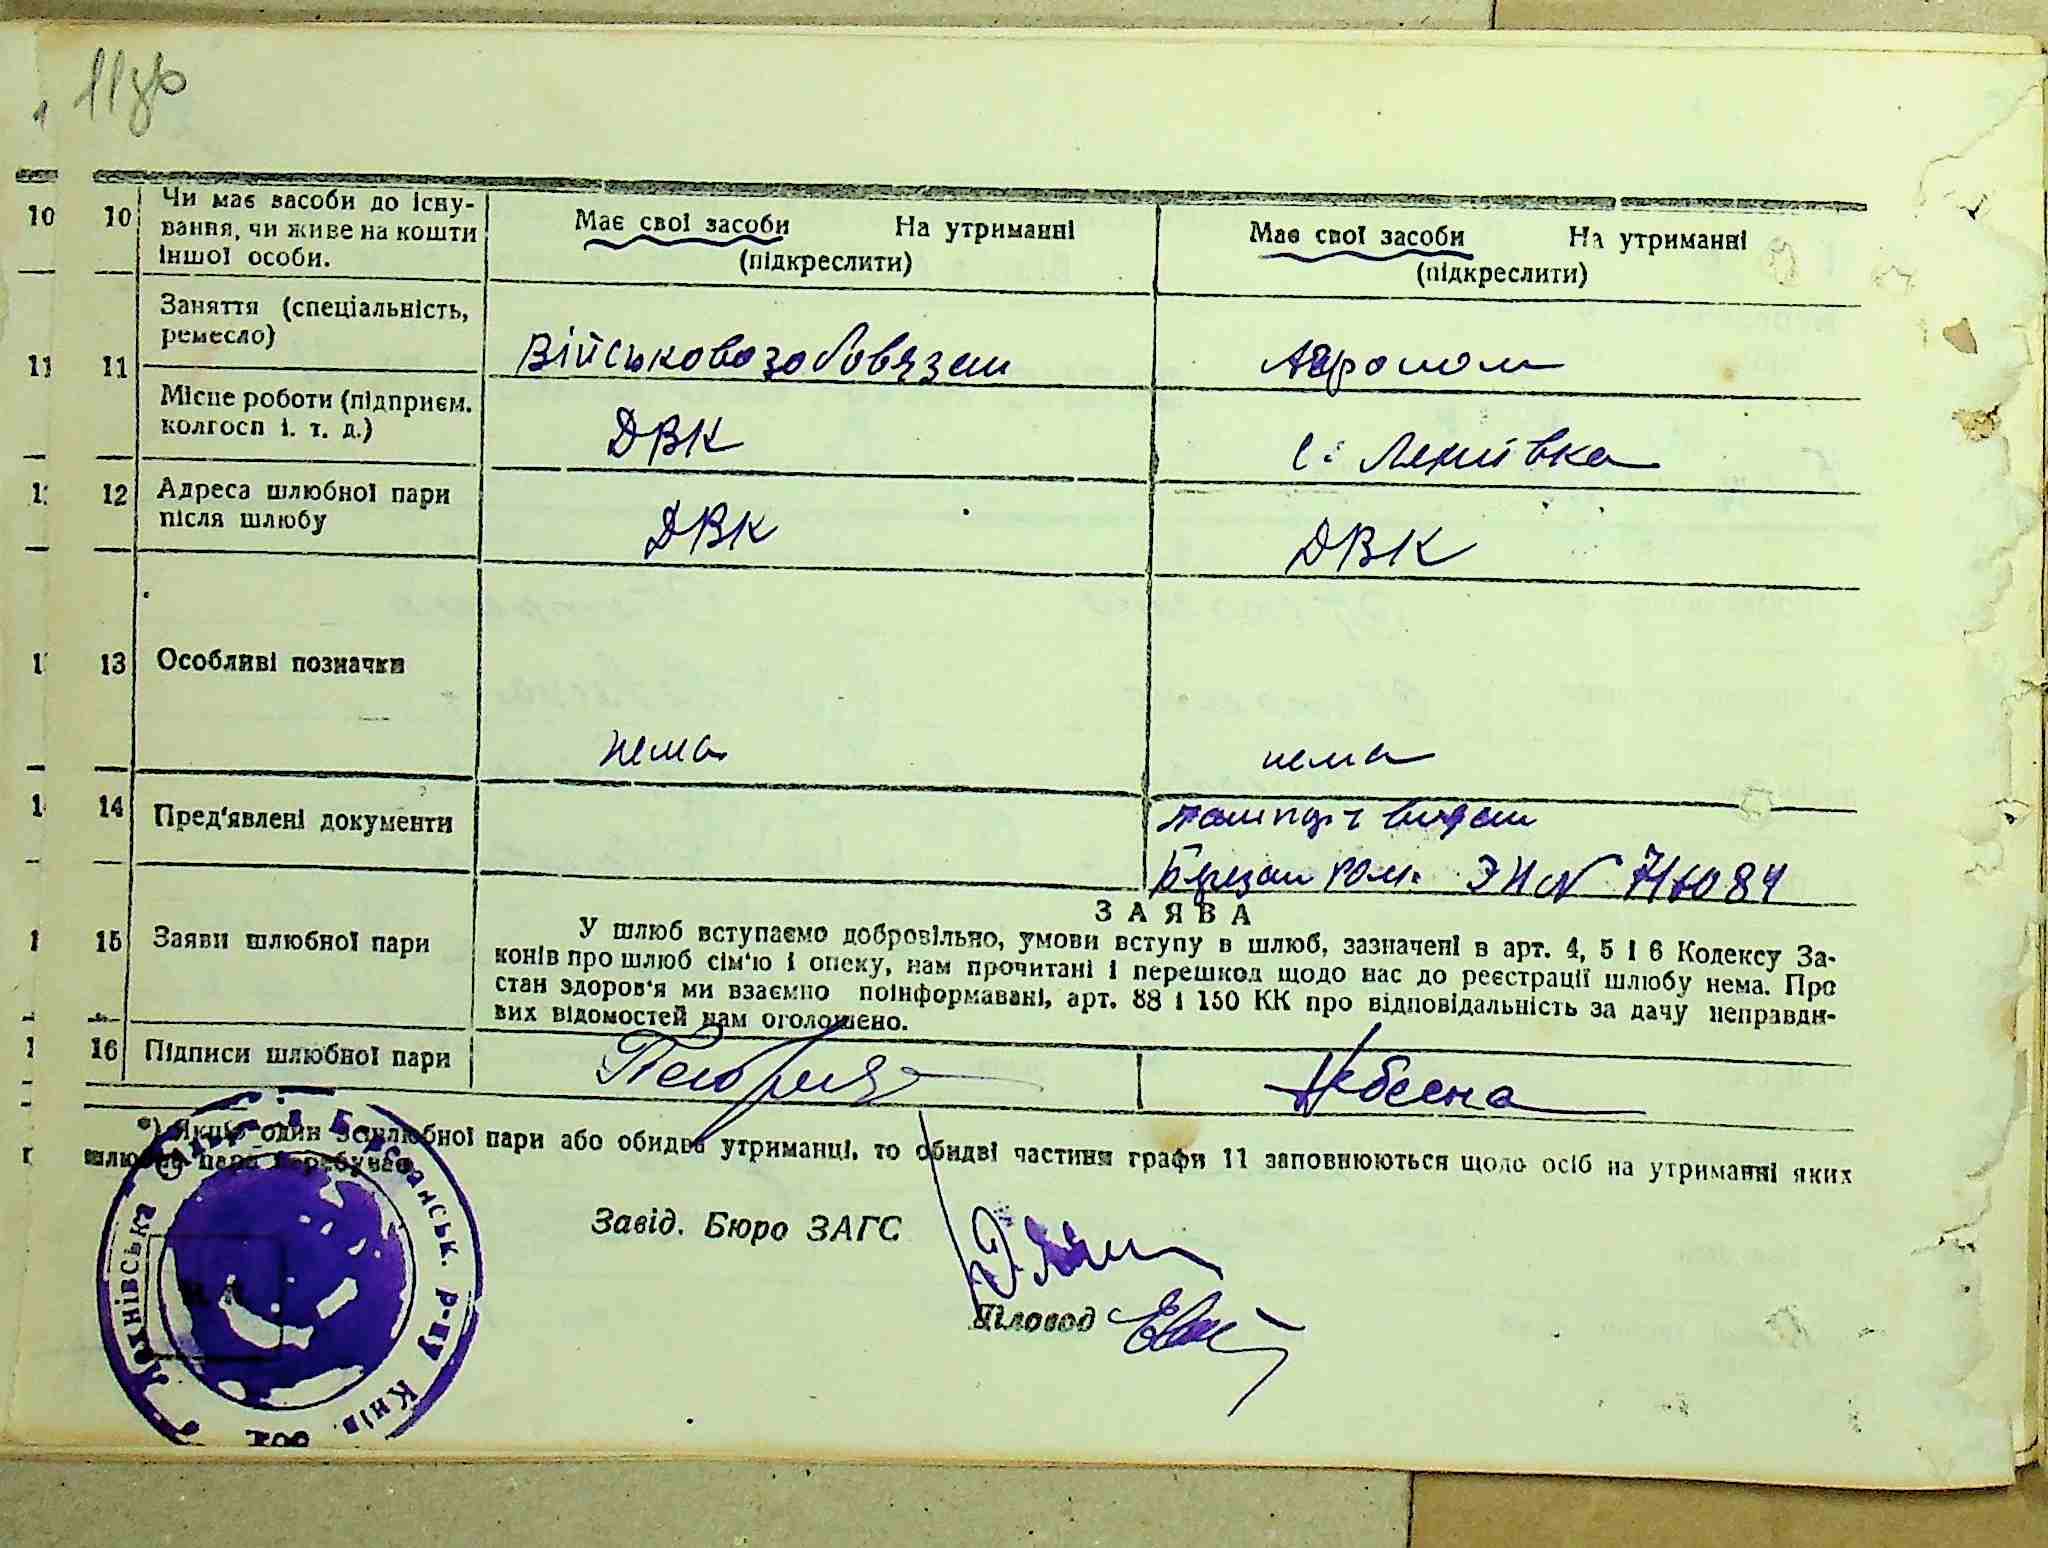 10 10 Чи має засоби до існу-
вання, чи живе на кошти
іншої особи.
Має свої засоби На утриманні
(підкреслити)
Має свої засоби На утриманні
(підкреслити)
11 11 Заняття (спеціальність,
ремесло)
Військовозобовязан
Агроном
Місце роботи (підприєм.
колгосп і. т. д.)
ДВК
с.
12 Адреса шлюбної пари
після шлюбу
ДВК
ДВК
13 Особливі позначки
нема
нема
14 Пред'явлені документи
видан
15 Заяви шлюбної пари
ЗАЯВА
У шлюб вступаємо добровільно, умови вступу в шлюб, зазначені в арт. 4, 5 і 6 Кодексу За-
конів про шлюб сім'ю і опеку, нам прочитані і перешкод щодо нас до реєстрації шлюбу нема. Про
стан здоров'я ми взаємно поінформавані, арт. 88 і 150 КК про відповідальність за дачу неправди-
вих відомостей нам оголошено.
16 Підписи шлюбної пари
Небесна
*) Якщо один з шлюбної пари або обидва утриманці, то обидві частини графи 11 заповнюються щодо осіб на утриманні яких
шлюбна пара перебуває
Завід. Бюро ЗАГС
Діловод
р-ну Київ.